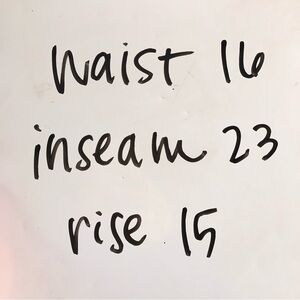 waist 16
inseam 23
rise 15